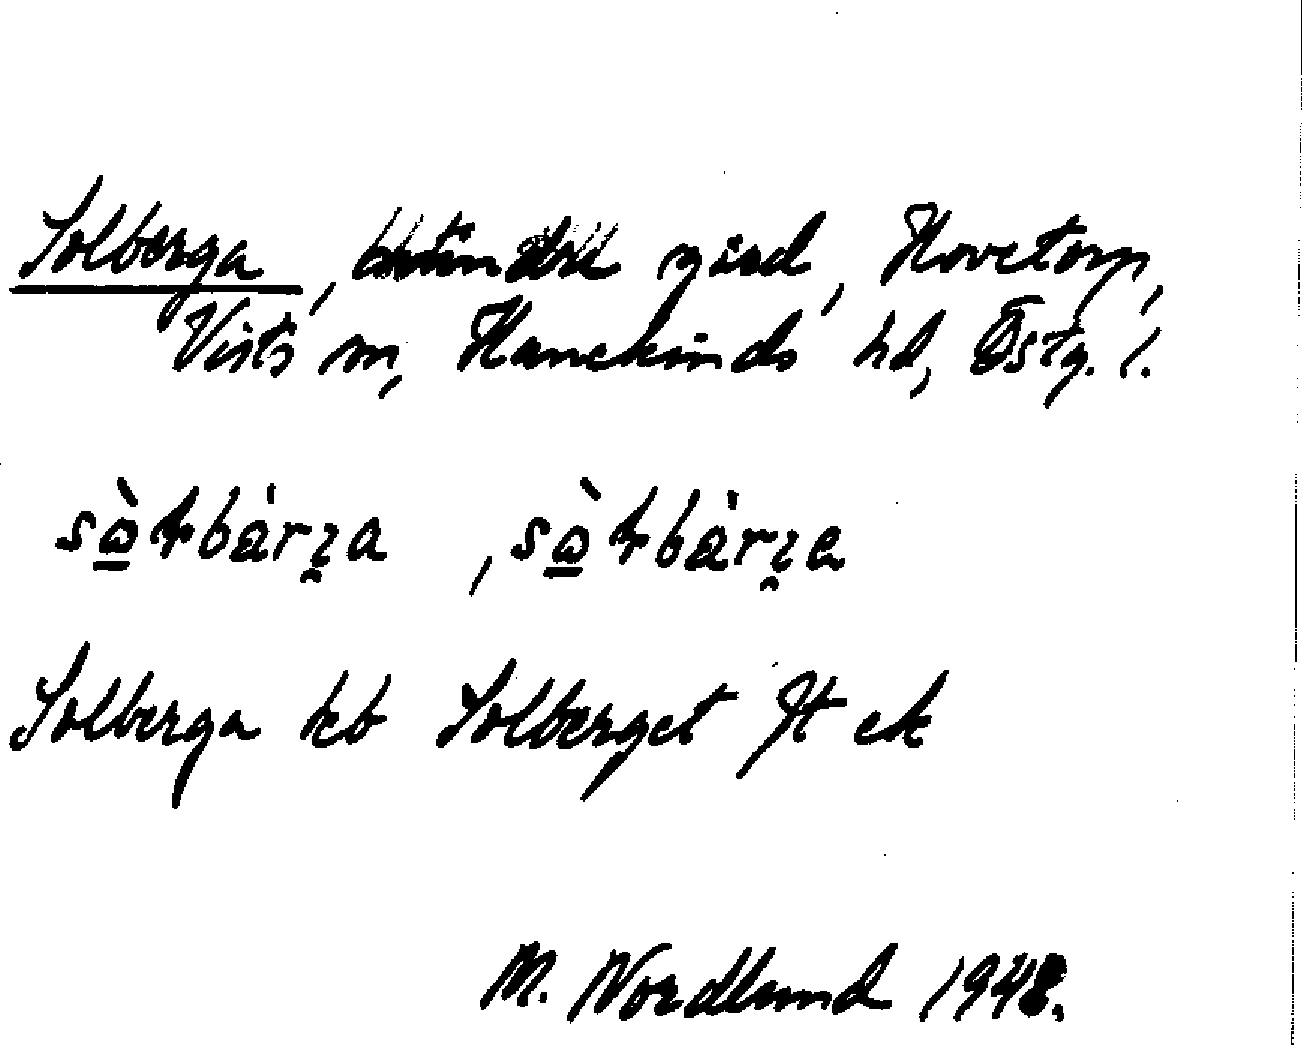 Solberga, gård, Hovetorp,
Vists sn, Hanekinds hd, Östg. l.
sὼłbárza, sὼłbárza
Solberga Solberget
M. Nordlund 1948.